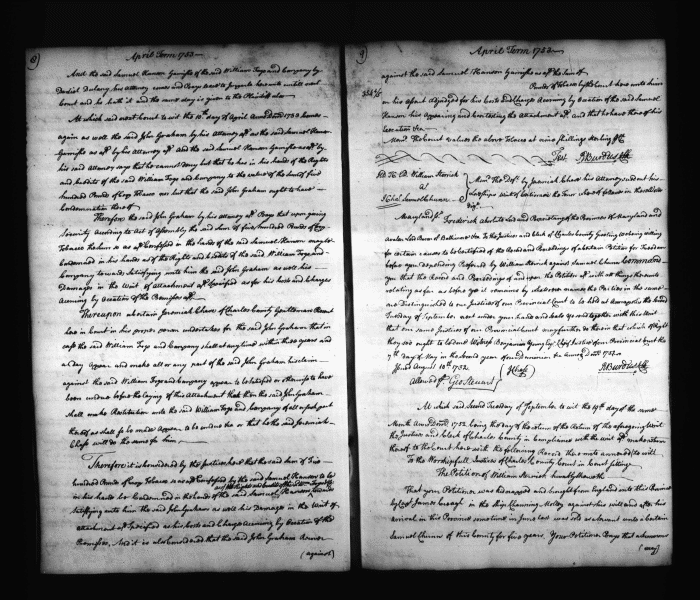 8)
April Term 1753
And the said Samuel Hanson Garnishe of the said William Fogo and Company by
Daniel Dulany his Attorney comes and Prays leave to Imparle hereunto until next
Court and he hath it and the same day is given to the Plaintiff also
At which said next Court to wit the 10th day of April Anno Domini 1753 comes
again as well the said John Graham by his Attorney aforesaid as the said Samuel Hanson
Garnishe as afd by his Attorney afd and the said Samuel Hanson Garnishe as afd by
his said Attorney says that he cannot deny but that he has in his hands of the Rights
and Credits of the said William Fogo and Company to the value of the sum of five
hundred Pounds of Crop Tobacco nor but that the said John Graham ought to have
Condemnation thereof
Therefore the said John Graham by his Attorney afd Prays that upon giving
Security According to Act of Assembly the said sum of five hundred Pounds of Crop
Tobacco the sum so as afd Confessed in the hands of the said Samuel Hanson may be
Condemned in his hands as of the Rights and Credits of the said William Fogo and
Company towards Satisfying unto him the said John Graham as well his
Damages in the Writ of Attachment afd Specified as for his Costs and Charges
Accruing by Occasion of the Premises afd
Thereupon a Certain Jeremiah Chase of Charles County Gentleman Present
here in Court in his proper person undertakes for the said John Graham that in
case the said William Fogo and Company shall at any time within three years and
a day Appear and make all or any part of the said John Graham his claim
against the said William Fogo and Company appear to be satisfied or otherwise to have
been undue before the laying of this Attachment that then the said John Graham
shall make Restitution unto the said William Fogo and Company of all or such part
thereof as shall so be made Appear to be undue or that he the said Jeremiah
Chase will do the same for him
Therefore it is Considered by the Justices here that the said sum of Five
hundred Pounds of Crop Tobacco so as afd Confessed by the said Samuel Hanson to be
in his hands be Condemned in the hands of the said Samuel Hanson towards
Satisfying unto him the said John Graham as well his Damages in the Writ of
Attachment afd Specified as his Costs and Charges Accruing by Occasion of the
Premises, And it is also Considered that the said John Graham Recover
(against)
9)
April Term 1753
against the said Samuel Hanson Garnishe as afd the sum of
Pounds of Tobacco by the Court here unto him
on his Assent Adjudged for his Costs and Charges Accruing by Occasion of the said Samuel
Hanson his Appearing and Contesting the Attachment afd and that he have thereof his
Execution &c
And the Court values the above Tobacco at nine Shillings Sterling
Test R Burdus Clk
William Merrick
agt
Samuel Chunn
Mem. That by Jeremiah Chase his Attorney sued out his
Lordships Writ of Certiorari the Tenor whereof follows in these Words
Maryland ss. Frederick absolute Lord and Proprietary of the Provinces of Maryland and
Avalon Lord Baron of Baltimore &c To the Justices and Clerk of Charles County Greeting we being willing
for certain causes to be Certified of the Record and Proceedings of a Certain Petition for Freedom
before you depending Preferred by William Merrick against Samuel Chunn Command
you that the Record and Proceedings of and upon the Petition afd with all things thereunto
relating as far as before you it remains by whatever names the Parties in the same
are Distinguished to our Justices of our Provincial Court to be held at Annapolis the second
Tuesday of September next under your hands and Seals you send together with this Writ
that our same Justices of our Provincial Court may further do therein that which of Right
they see ought to be done Witness Benjamin Young Esqr Chief Justice of our Provincial Court the
7th day of May in the second year of our Dominion &c Anno Domini 1752
Issued August 10th 1752
Allowed p Geo Steuart
J Chase
R Burdus Clk
At which said Second Tuesday of September to wit the 19th day of the same
Month Anno Domini 1752 being the day of the return of the Return of the aforegoing Writ
the Justices and Clerk of Charles County in Compliance with the Writ afd make return
thereof to the Court here with the following Record thereunto annexed to wit
To the Worshipfull Justices of Charles County Court in Court Sitting
The Petition of William Merrick humbly sheweth
That your Petitioner was kidnapped and brought from England into this Province
by Capt James Creagh in the Ship Channing Molley against his will and after his
arrival in this Province sometime in June last was sold as a Servant unto a Certain
Samuel Chunn of this County for five years. Your Petitioner Prays that as he never
(any)